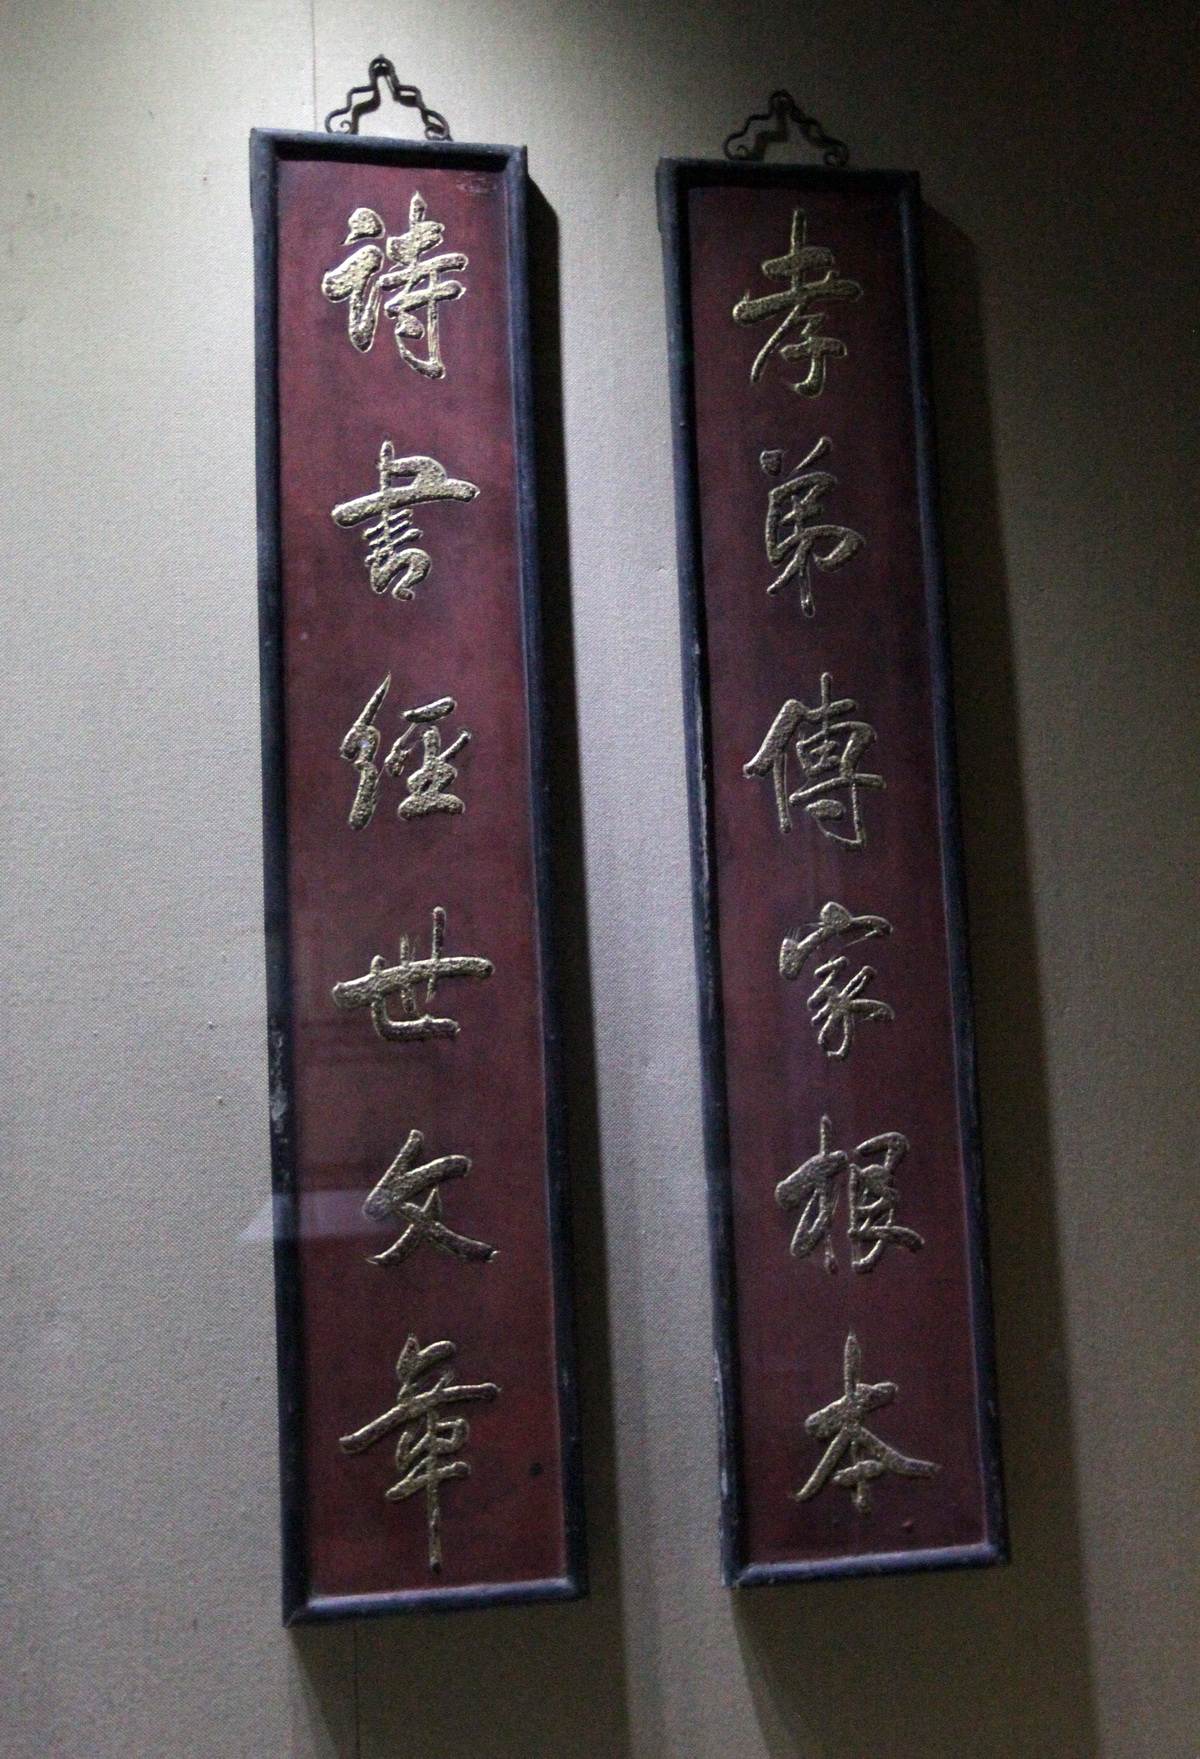 孝弟傳家根本
詩書經世文章